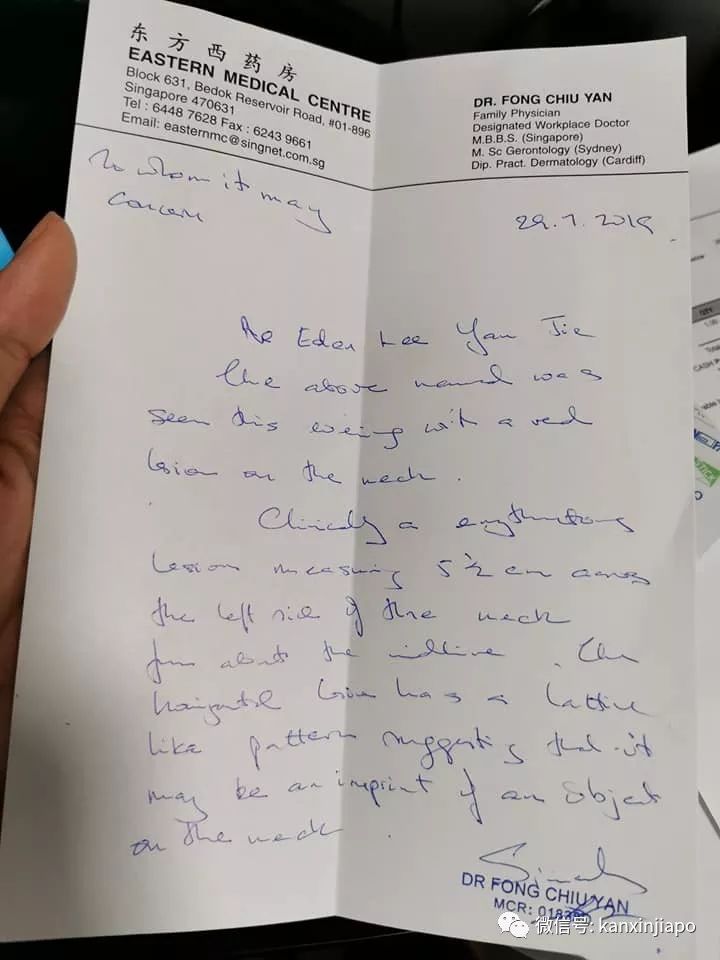 东方西药房
EASTERN MEDICAL CENTRE
Block 631, Bedok Reservoir Road, #01-896
Singapore 470631
Tel : 6448 7628 Fax : 6243 9661
Email: easternmc@singnet.com.sg
DR. FONG CHIU YAN
Family Physician
Designated Workplace Doctor
M.B.B.S. (Singapore)
M. Sc Gerontology (Sydney)
Dip. Pract. Dermatology (Cardiff)
To whom it may
concern
29.7.2019
Re Eden Lee Yan Jie
The above named was
seen this evening with a red
lesion on the neck.
Clinically a erythematous
lesion measuring 5½ cm across
the left side of the neck
from about the midline. The
horizontal lesion has a lattice
like pattern suggesting that it
may be an imprint of an object
on the neck.
DR FONG CHIU YAN
MCR:
微信号: kanxinjiapo